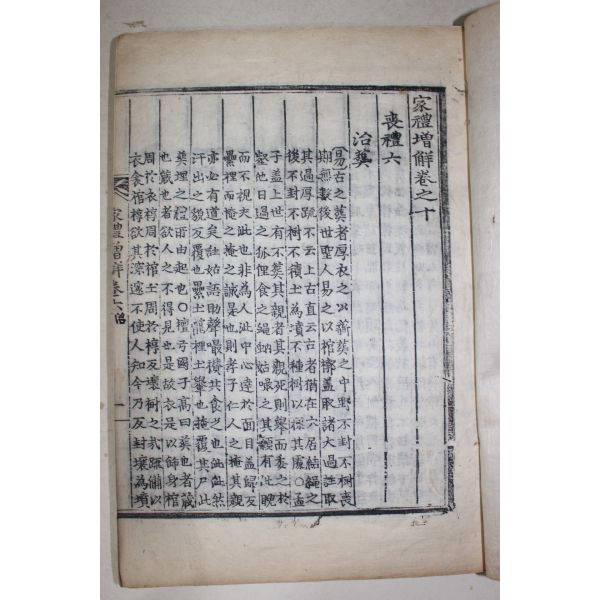 家禮增解卷之十
喪禮六
治葬
易古之葬者厚衣之以薪葬之中野不封不樹喪
期無數後世聖人易之以棺槨盖取諸大過註取
其過厚䟽不云上古直云古者猶在穴居結繩之
後不封不樹不積土為墳不種樹以標其處○孟
子盖上世有不葬其親者其親死則舉而委之於
壑他日過之狐狸食之蝇蚋姑嘬之其顙有泚睨
而不視夫泚也非為人泚中心達於面目盖歸反
虆梩而掩之掩之誠是也則孝子仁人之掩其親
亦必有道矣註姑語助聲嘬攢共食之也泚泚然
汗出之貌反覆也虆土籠梩土轝也掩覆其尸此
葬埋之禮所由起也○檀弓國子高曰葬也者藏
也藏也者欲人之不得見也是故衣足以飾身棺
周於衣椁周於棺土周於椁反壤樹之哉䟽備以
衣食棺椁欲其深邃不使人知今乃反封壤為墳
家禮增解卷六
一